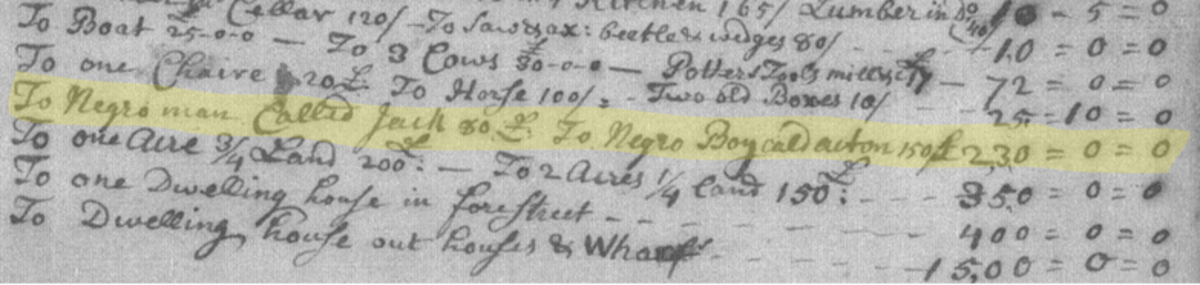 Cellar 120/ - To Saw & ax: beetle & wedges 80/ 10 - 5 = 0
To Boat 25-0-0 — To 3 Cows £30-0-0 — Potters Tools mill &c 10 = 0 = 0
To one Chaire 20£. To Horse 100/ - Two old Boxes 10/ 72 = 0 = 0
To Negro man Called Jack 80£. To Negro Boy cald acton 150£ 25 = 10 = 0
To one Acre 3/4 Land 200£: — To 2 Acres 1/4 land 150£: 230 = 0 = 0
To one Dwelling house in forestreet - - - 350 = 0 = 0
To Dwelling house out houses & Wharf 400 = 0 = 0
1500 = 0 = 0